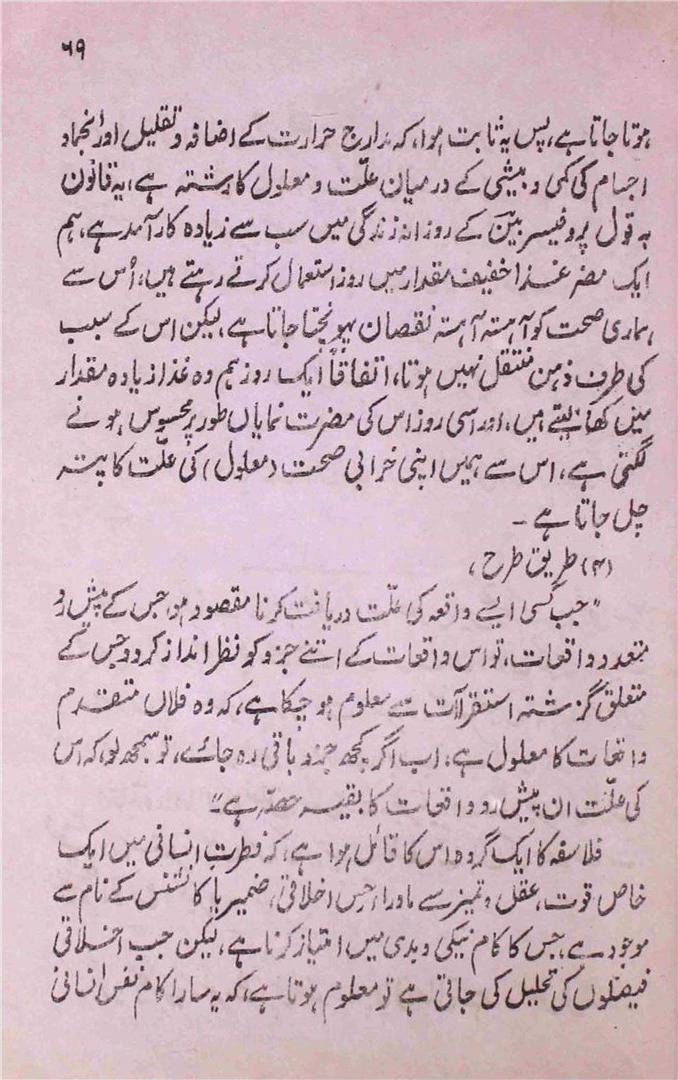 ۶۹
ہوتا جاتا ہے، پس یہ ثابت ہوا، کہ مدارج حرارت کے اضافہ و تقلیل اور انجماد
اجسام کی کمی و بیشی کے درمیان علّت و معلول کا رشتہ ہے، یہ قانون
بہ قول پروفیسر بینؔ کے روزانہ زندگی میں سب سے زیادہ کارآمد ہے، ہم
ایک مضر غذا خفیف مقدار میں روز استعمال کرتے رہتے ہیں، اُس سے
ہماری صحت کو آہستہ آہستہ نقصان پہونچتا جاتا ہے، لیکن اس کے سبب
کی طرف ذہن منتقل نہیں ہوتا، اتفاقاً ایک روز ہم وہ غذا زیادہ مقدار
میں کھا لیتے ہیں، اور اسی روز اس کی مضرت نمایاں طور پر محسوس ہونے
لگتی ہے، اس سے ہمیں اپنی خرابی صحت (معلول) کی علّت کا پتہ
چل جاتا ہے ۔
(۴) طریق طرح،
"جب کسی ایسے واقعہ کی علّت دریافت کرنا مقصود ہو، جس کے پیش رو
متعدد واقعات، تو اس واقعات کے اتنے جزو کو نظر انداز کر دو، جس کے
متعلق گزشتہ استقراآت سے معلوم ہو چکا ہے، کہ وہ فلاں متقدم
واقعات کا معلول ہے، اب اگر کچھ جزو باقی رہ جائے، تو سمجھ لو، کہ اس
کی علّت ان پیش رو واقعات کا بقیہ حصّہ ہے"
فلاسفہ کا ایک گروہ اس کا قائل ہوا ہے، کہ فطرت انسانی میں ایک
خاص قوت، عقل و تمیز سے ماوراء، حِس اخلاقی، ضمیر یا کانشنس کے نام سے
موجود ہے، جس کا کام نیکی و بدی میں امتیاز کرنا ہے، لیکن جب اخلاقی
فیصلوں کی تحلیل کی جاتی ہے تو معلوم ہوتا ہے، کہ یہ سارا کام نفس انسانی